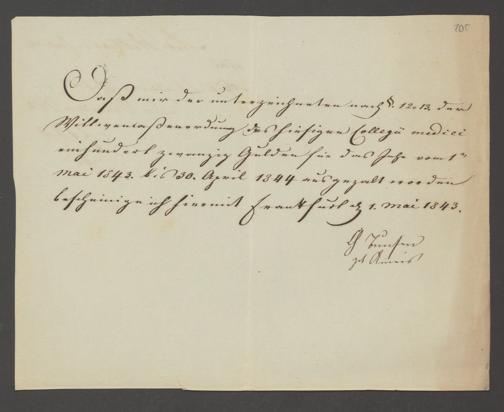 205
Daß mir der unterzeichneten nach §. 12.13. der
Wittwencaßenordnung des hiesigen Collegii medici
einhundert zwanzig Gulden für das Jahr vom 1ten
Mai 1843. bis 30. April 1844 ausgezalt worden
bescheinige ich hiermit Frankfurt d. 1. Mai 1843.